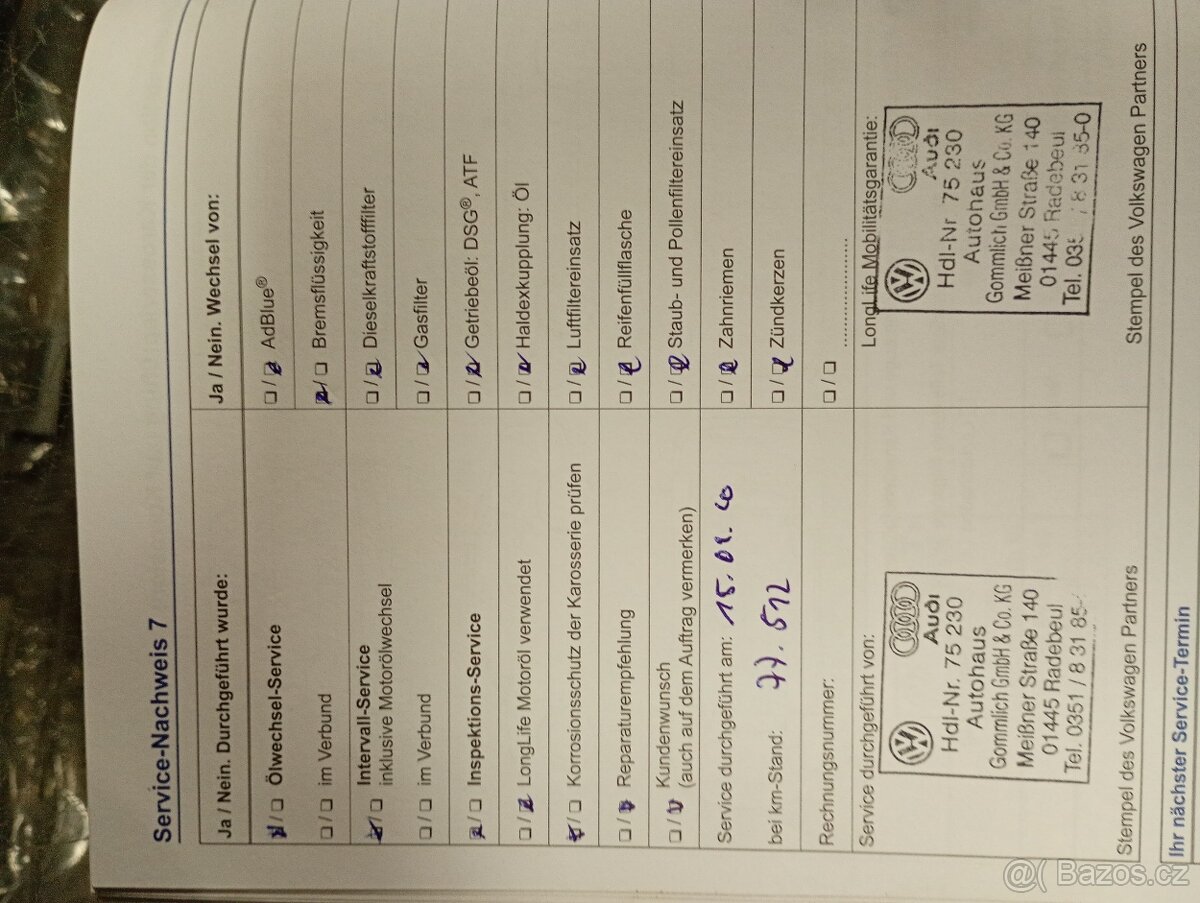 Service-Nachweis 7
Ja / Nein. Durchgeführt wurde:
Ölwechsel-Service
im Verbund
Intervall-Service
inklusive Motorölwechsel
im Verbund
Inspektions-Service
LongLife Motoröl verwendet
Korrosionsschutz der Karosserie prüfen
Reparaturempfehlung
Kundenwunsch
(auch auf dem Auftrag vermerken)
Service durchgeführt am: 15.01.
bei km-Stand: 77.512
Rechnungsnummer:
Service durchgeführt von:
Audi
Hdl-Nr. 75 230
Autohaus
Gommlich GmbH & Co. KG
Meißner Straße 140
01445 Radebeul
Tel. 0351 / 8 31 85-
Stempel des Volkswagen Partners
Ja / Nein. Wechsel von:
AdBlue®
Bremsflüssigkeit
Dieselkraftstofffilter
Gasfilter
Getriebeöl: DSG®, ATF
Haldexkupplung: Öl
Luftfiltereinsatz
Reifenfüllflasche
Staub- und Pollenfiltereinsatz
Zahnriemen
Zündkerzen
LongLife Mobilitätsgarantie:
Audi
Hdl-Nr 75 230
Autohaus
Gommlich GmbH & Co. KG
Meißner Straße 140
01445 Radebeul
Tel. 035 / 8 31 85-0
Stempel des Volkswagen Partners
Ihr nächster Service-Termin
Bazos.cz